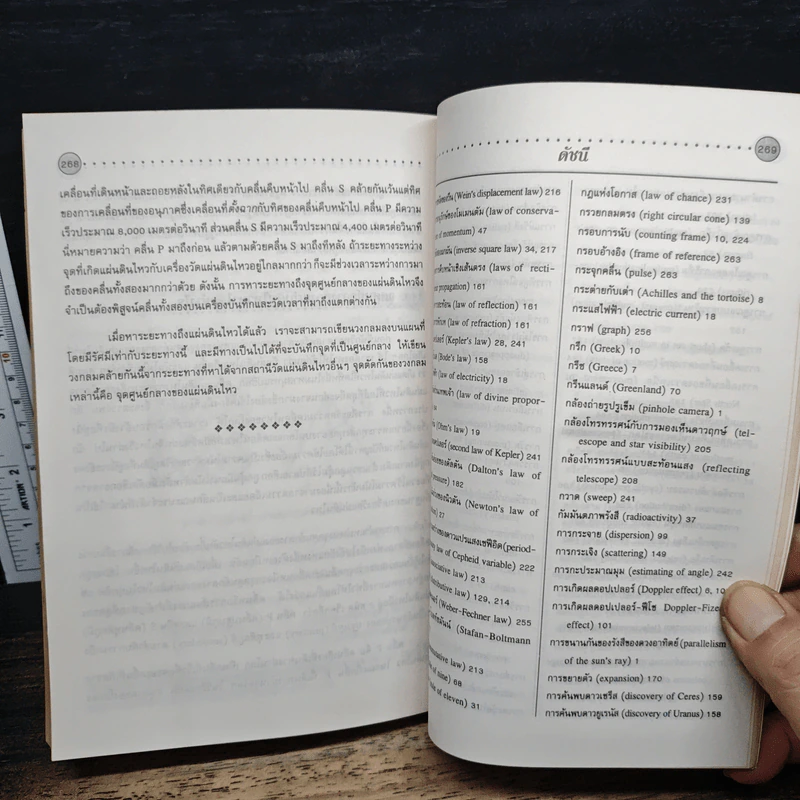 268
เคลื่อนที่เดินหน้าและถอยหลังในทิศเดียวกับคลื่นคืบหน้าไป คลื่น S คล้ายกันเว้นแต่ทิศ
ของการเคลื่อนที่ของอนุภาคซึ่งเคลื่อนที่ตั้งฉากกับทิศของคลื่นคืบหน้าไป คลื่น P มีความ
เร็วประมาณ 8,000 เมตรต่อวินาที ส่วนคลื่น S มีความเร็วประมาณ 4,400 เมตรต่อวินาที
นี่หมายความว่า คลื่น P มาถึงก่อน แล้วตามด้วยคลื่น S มาถึงทีหลัง ถ้าระยะทางระหว่าง
จุดที่เกิดแผ่นดินไหวกับเครื่องวัดแผ่นดินไหวอยู่ไกลมากกว่า ก็จะมีช่วงเวลาระหว่างการมา
ถึงของคลื่นทั้งสองมากกว่าด้วย ดังนั้น การหาระยะทางถึงจุดศูนย์กลางของแผ่นดินไหวจึง
จำเป็นต้องพิสูจน์คลื่นทั้งสองบนเครื่องบันทึกและวัดเวลาที่มาถึงแตกต่างกัน
เมื่อหาระยะทางถึงแผ่นดินไหวได้แล้ว เราจะสามารถเขียนวงกลมลงบนแผนที่
โดยมีรัศมีเท่ากับระยะทางนี้ และมีทางเป็นไปได้ที่จะบันทึกจุดที่เป็นศูนย์กลาง ให้เขียน
วงกลมคล้ายกันนี้จากระยะทางที่หาได้จากสถานีวัดแผ่นดินไหวอื่นๆ จุดตัดของวงกลม
เหล่านี้คือ จุดศูนย์กลางของแผ่นดินไหว
269
ดัชนี
(Wein's displacement law) 216
(law of conserva-
of momentum) 47
(inverse square law) 34, 217
(laws of recti-
propagation) 161
(law of reflection) 161
(law of refraction) 161
(Kepler's law) 28, 241
(Bode's law) 158
(law of electricity) 18
(law of divine propor-
(Ohm's law) 19
(second law of Kepler) 241
(Dalton's law of
182
(Newton's law of
27
(period-
law of Cepheid variable) 222
law) 213
law) 129, 214
(Weber-Fechner law) 255
(Stafan-Boltmann
law) 213
of nine) 68
of eleven) 31
กฎแห่งโอกาส (law of chance) 231
กรวยกลมตรง (right circular cone) 139
กรอบการนับ (counting frame) 10, 224
กรอบอ้างอิง (frame of reference) 263
กระจุกคลื่น (pulse) 263
กระต่ายกับเต่า (Achilles and the tortoise) 8
กระแสไฟฟ้า (electric current) 18
กราฟ (graph) 256
กรีก (Greek) 10
กรีซ (Greece) 7
กรีนแลนด์ (Greenland) 70
กล้องถ่ายรูปรูเข็ม (pinhole camera) 1
กล้องโทรทรรศน์กับการมองเห็นดาวฤกษ์ (tel-
escope and star visibility) 205
กล้องโทรทรรศน์แบบสะท้อนแสง (reflecting
telescope) 208
กวาด (sweep) 241
กัมมันตภาพรังสี (radioactivity) 37
การกระจาย (dispersion) 99
การกระเจิง (scattering) 149
การกะประมาณมุม (estimating of angle) 242
การเกิดผลดอปเปลอร์ (Doppler effect) 6, 10
การเกิดผลดอปเปลอร์-ฟิโซ Doppler-Fizeau
effect) 101
การขนานกันของรังสีของดวงอาทิตย์ (parallelism
of the sun's ray) 1
การขยายตัว (expansion) 170
การค้นพบดาวเซริส (discovery of Ceres) 159
การค้นพบดาวยูเรนัส (discovery of Uranus) 158